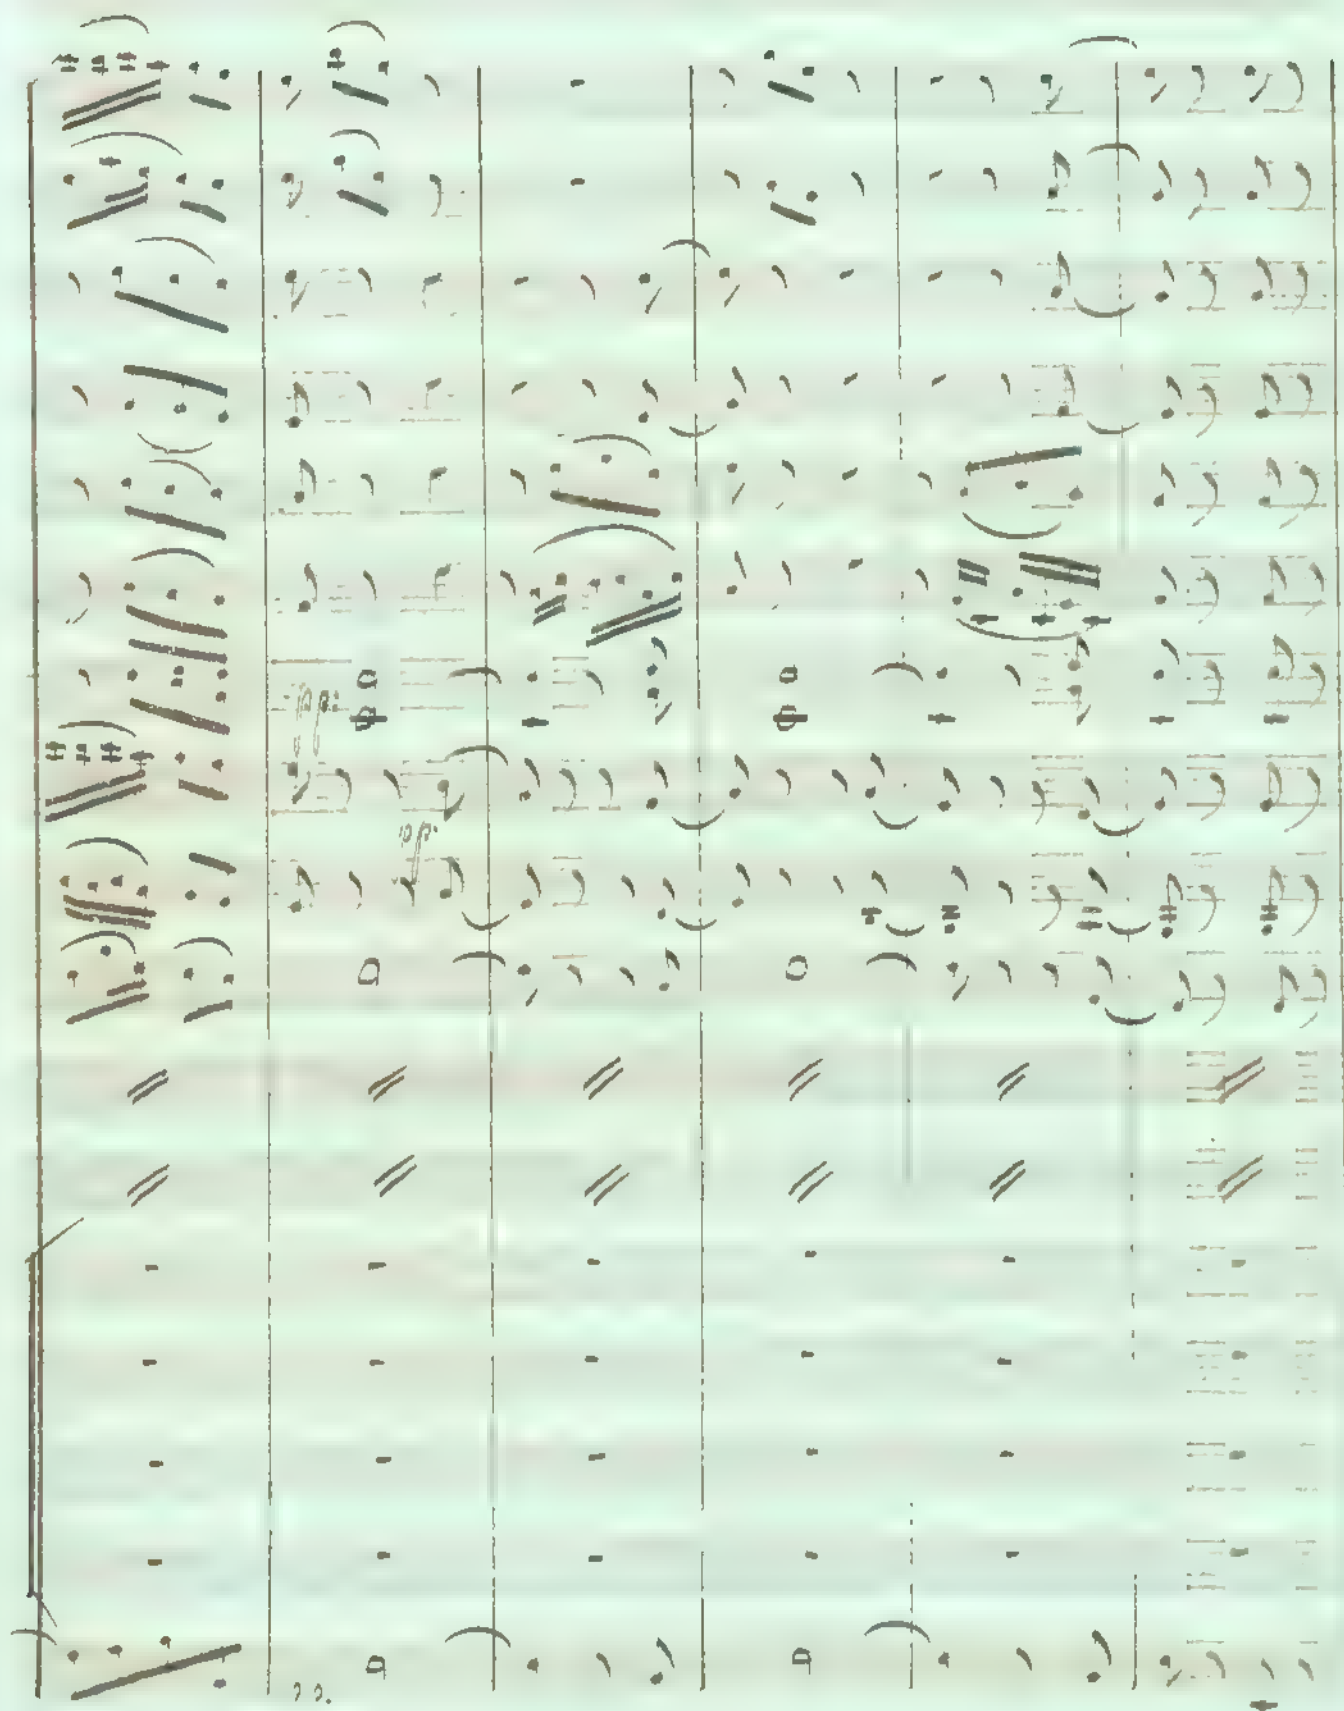 pp:
pp:
pp.